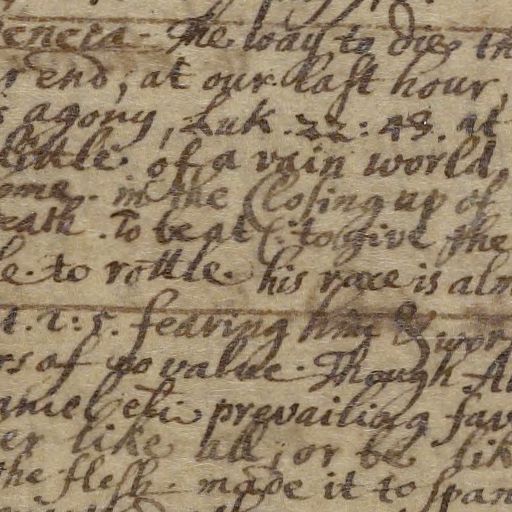 Seneca. The way to die, in
r end; at our last hour,
s agony, Luk. 22: 43. at
of a vain world,
ome. in the Closing up of
eath. To be at to give the
le. to rottle. his race is alm
1. 2: 5. fearing him wor
rs of no value. Though
prevailing fav
er like all; or be lik
the flesh. made it to span